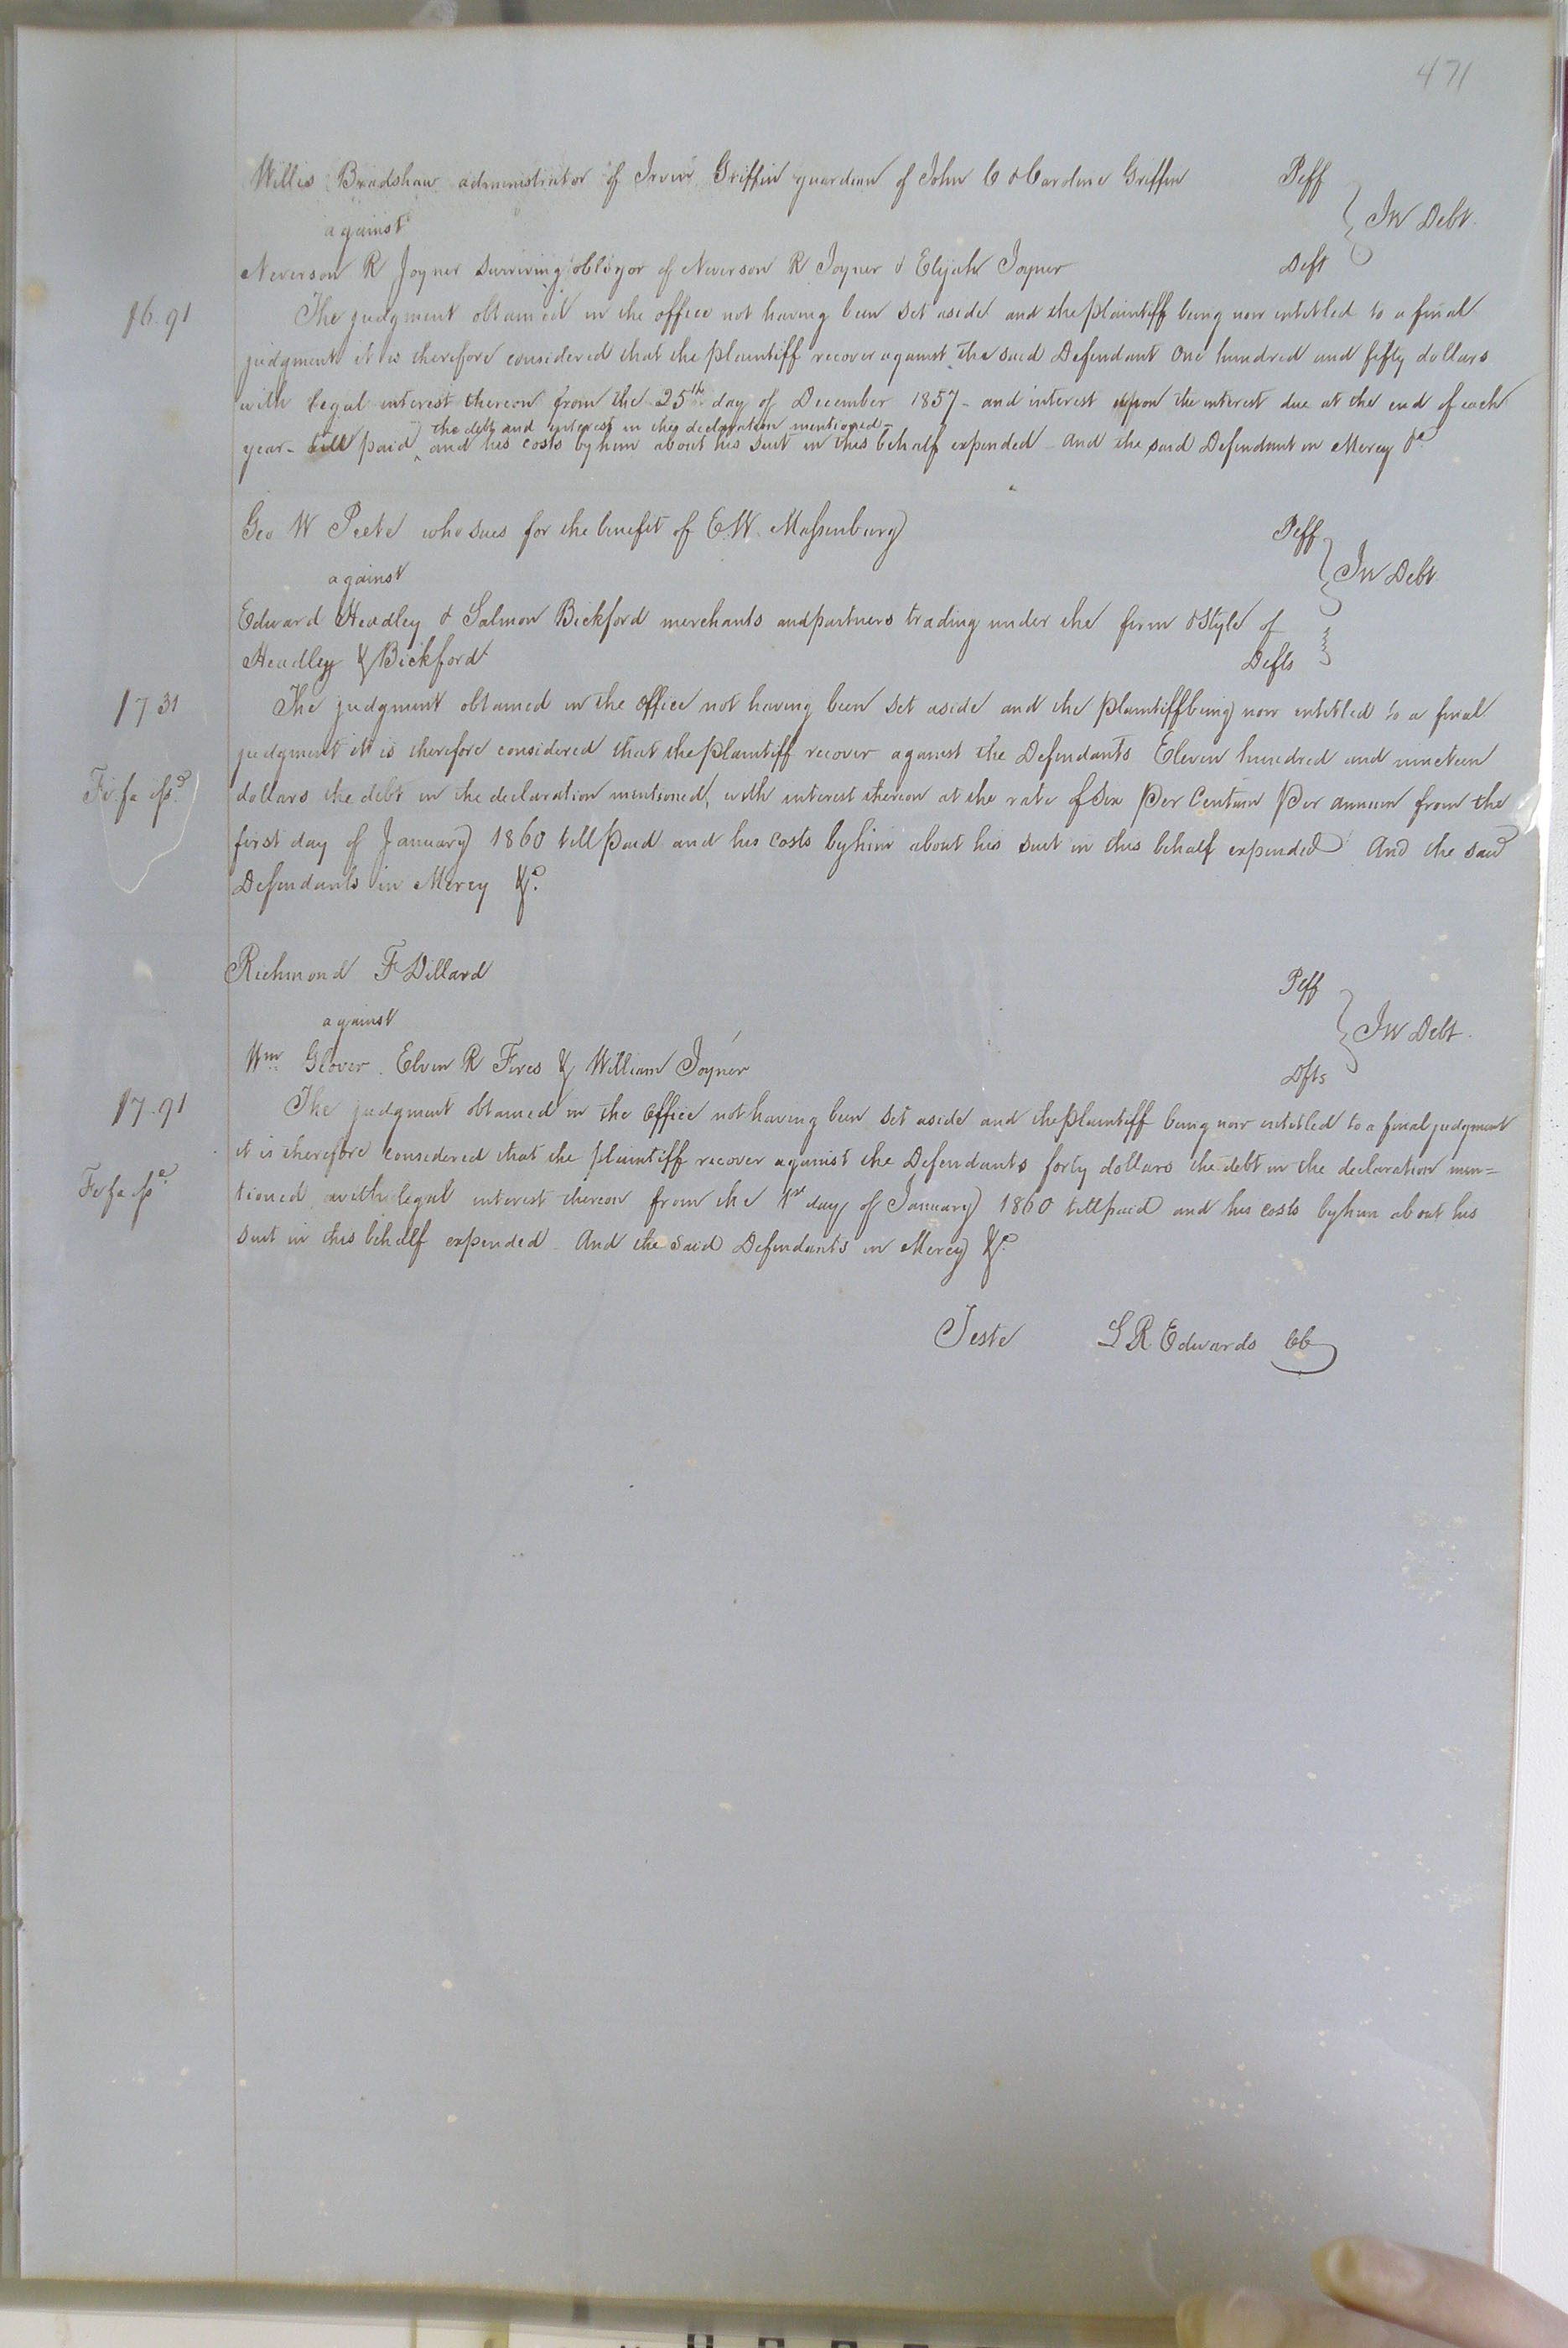 471
Willis Bradshaw administrator of Irvin Griffin guardian of John C & Caroline Griffin Plff
against In Debt
Neverson R Joyner surviving obligor of Neverson R Joyner & Elijah Joyner Deft
16.91 The judgment obtained in the office not having been set aside and the plaintiff being now entitled to a final
judgment it is therefore considered that the plaintiff recover against the said Defendant One hundred and fifty dollars
with legal interest thereon from the 25th day of December 1857 - and interest upon the interest due at the end of each
the debt and interest in the declaration mentioned -
year - till paid ^ and his costs by him about his suit in this behalf expended - And the said Defendant in Mercy &c
Geo W Peete who sues for the benefit of E.W. Massenburg Plff
against In Debt
Edward Headley & Salmon Bickford merchants and partners trading under the firm & Style of
Headley & Bickford Defts
17.31 The judgment obtained in the office not having been set aside and the plaintiff being now entitled to a final
judgment it is therefore considered that the plaintiff recover against the Defendants Eleven hundred and nineteen
Fi fa isd dollars the debt in the declaration mentioned, with interest thereon at the rate of Six Per Centum Per annum from the
first day of January 1860 till paid and his costs by him about his suit in this behalf expended And the said
Defendants in Mercy &c.
Richmond F Dillard Plff
against In Debt
Wm Glover. Elvin R Fires & William Joyner Dfts
17.91 The judgment obtained in the office not having been set aside and the plaintiff being now entitled to a final judgment
it is therefore considered that the plaintiff recover against the Defendants forty dollars the debt in the declaration men=
Fi fa isd tioned with legal interest thereon from the 1st day of January 1860 till paid and his costs by him about his
suit in this behalf expended And the said Defendants in Mercy &c.
Teste L R Edwards CC